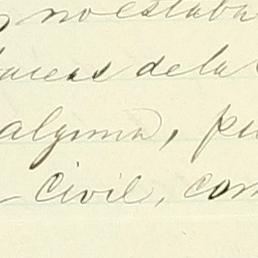 no estaba
de la
alguna, pu
Civil, com